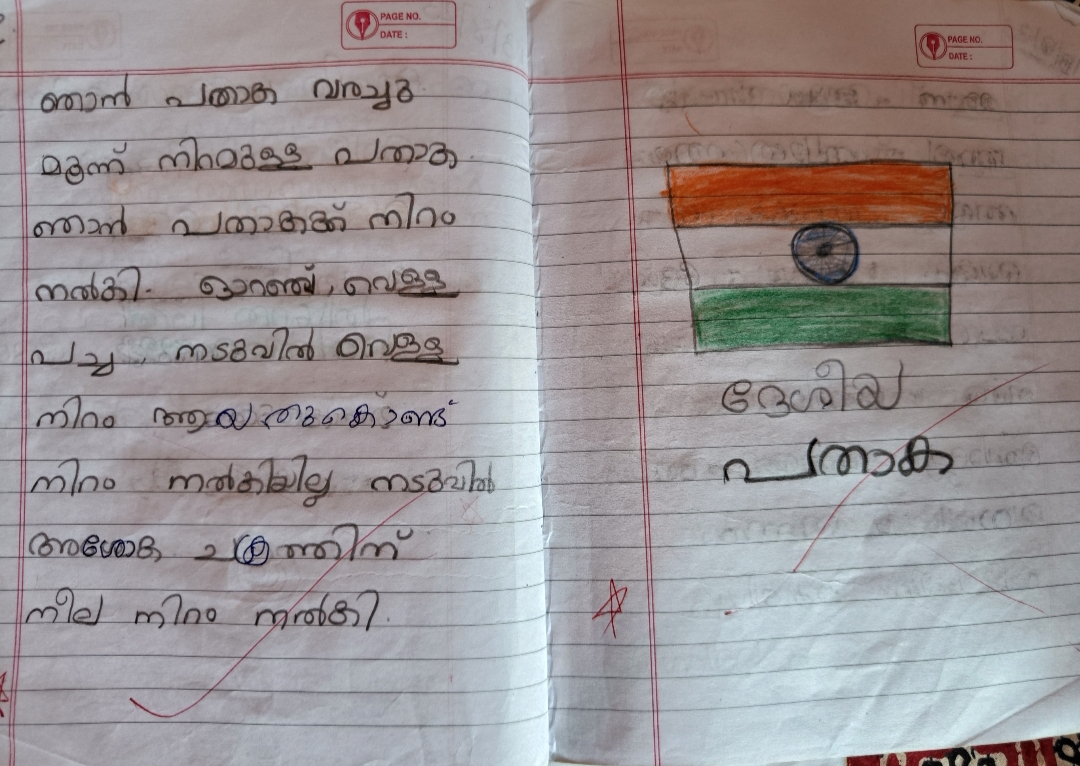 PAGE NO.
DATE :
ഞാൻ പതാക വരച്ചു
മൂന്ന് നിറമുള്ള പതാക.
ഞാൻ പതാകക്ക് നിറം
നൽകി. ഓറഞ്ച്, വെള്ള
പച്ച, നടുവിൽ വെള്ള
നിറം ആയതുകൊണ്ട്
നിറം നൽകിയില്ല നടുവിൽ
അശോക ചക്രത്തിന്
നീല നിറം നൽകി.
PAGE NO.
DATE :
ദേശീയ
പതാക